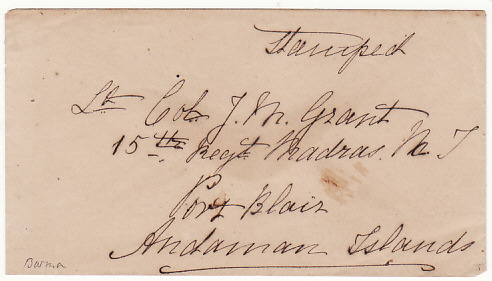 Stamped
Lt Col. J. M. Grant
15th Regt Madras. N I
Port Blair
Andaman Islands.
Burma